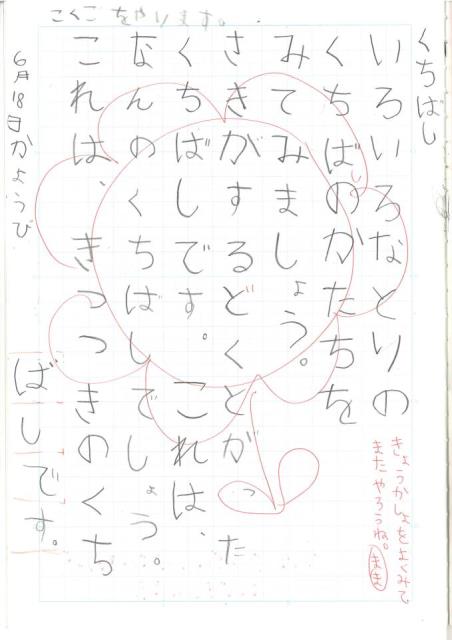 こくごをやります。
くちばし
いろいろなとりの
くちばしのかたちを
みてみましょう。
さきがするどくとがった
くちばしです。これは、
なんのくちばしでしょう。
これは、きつつきのくち
ばしです。
6月18日かようび
きょうかしょをよくみて
またやろうね。
まま